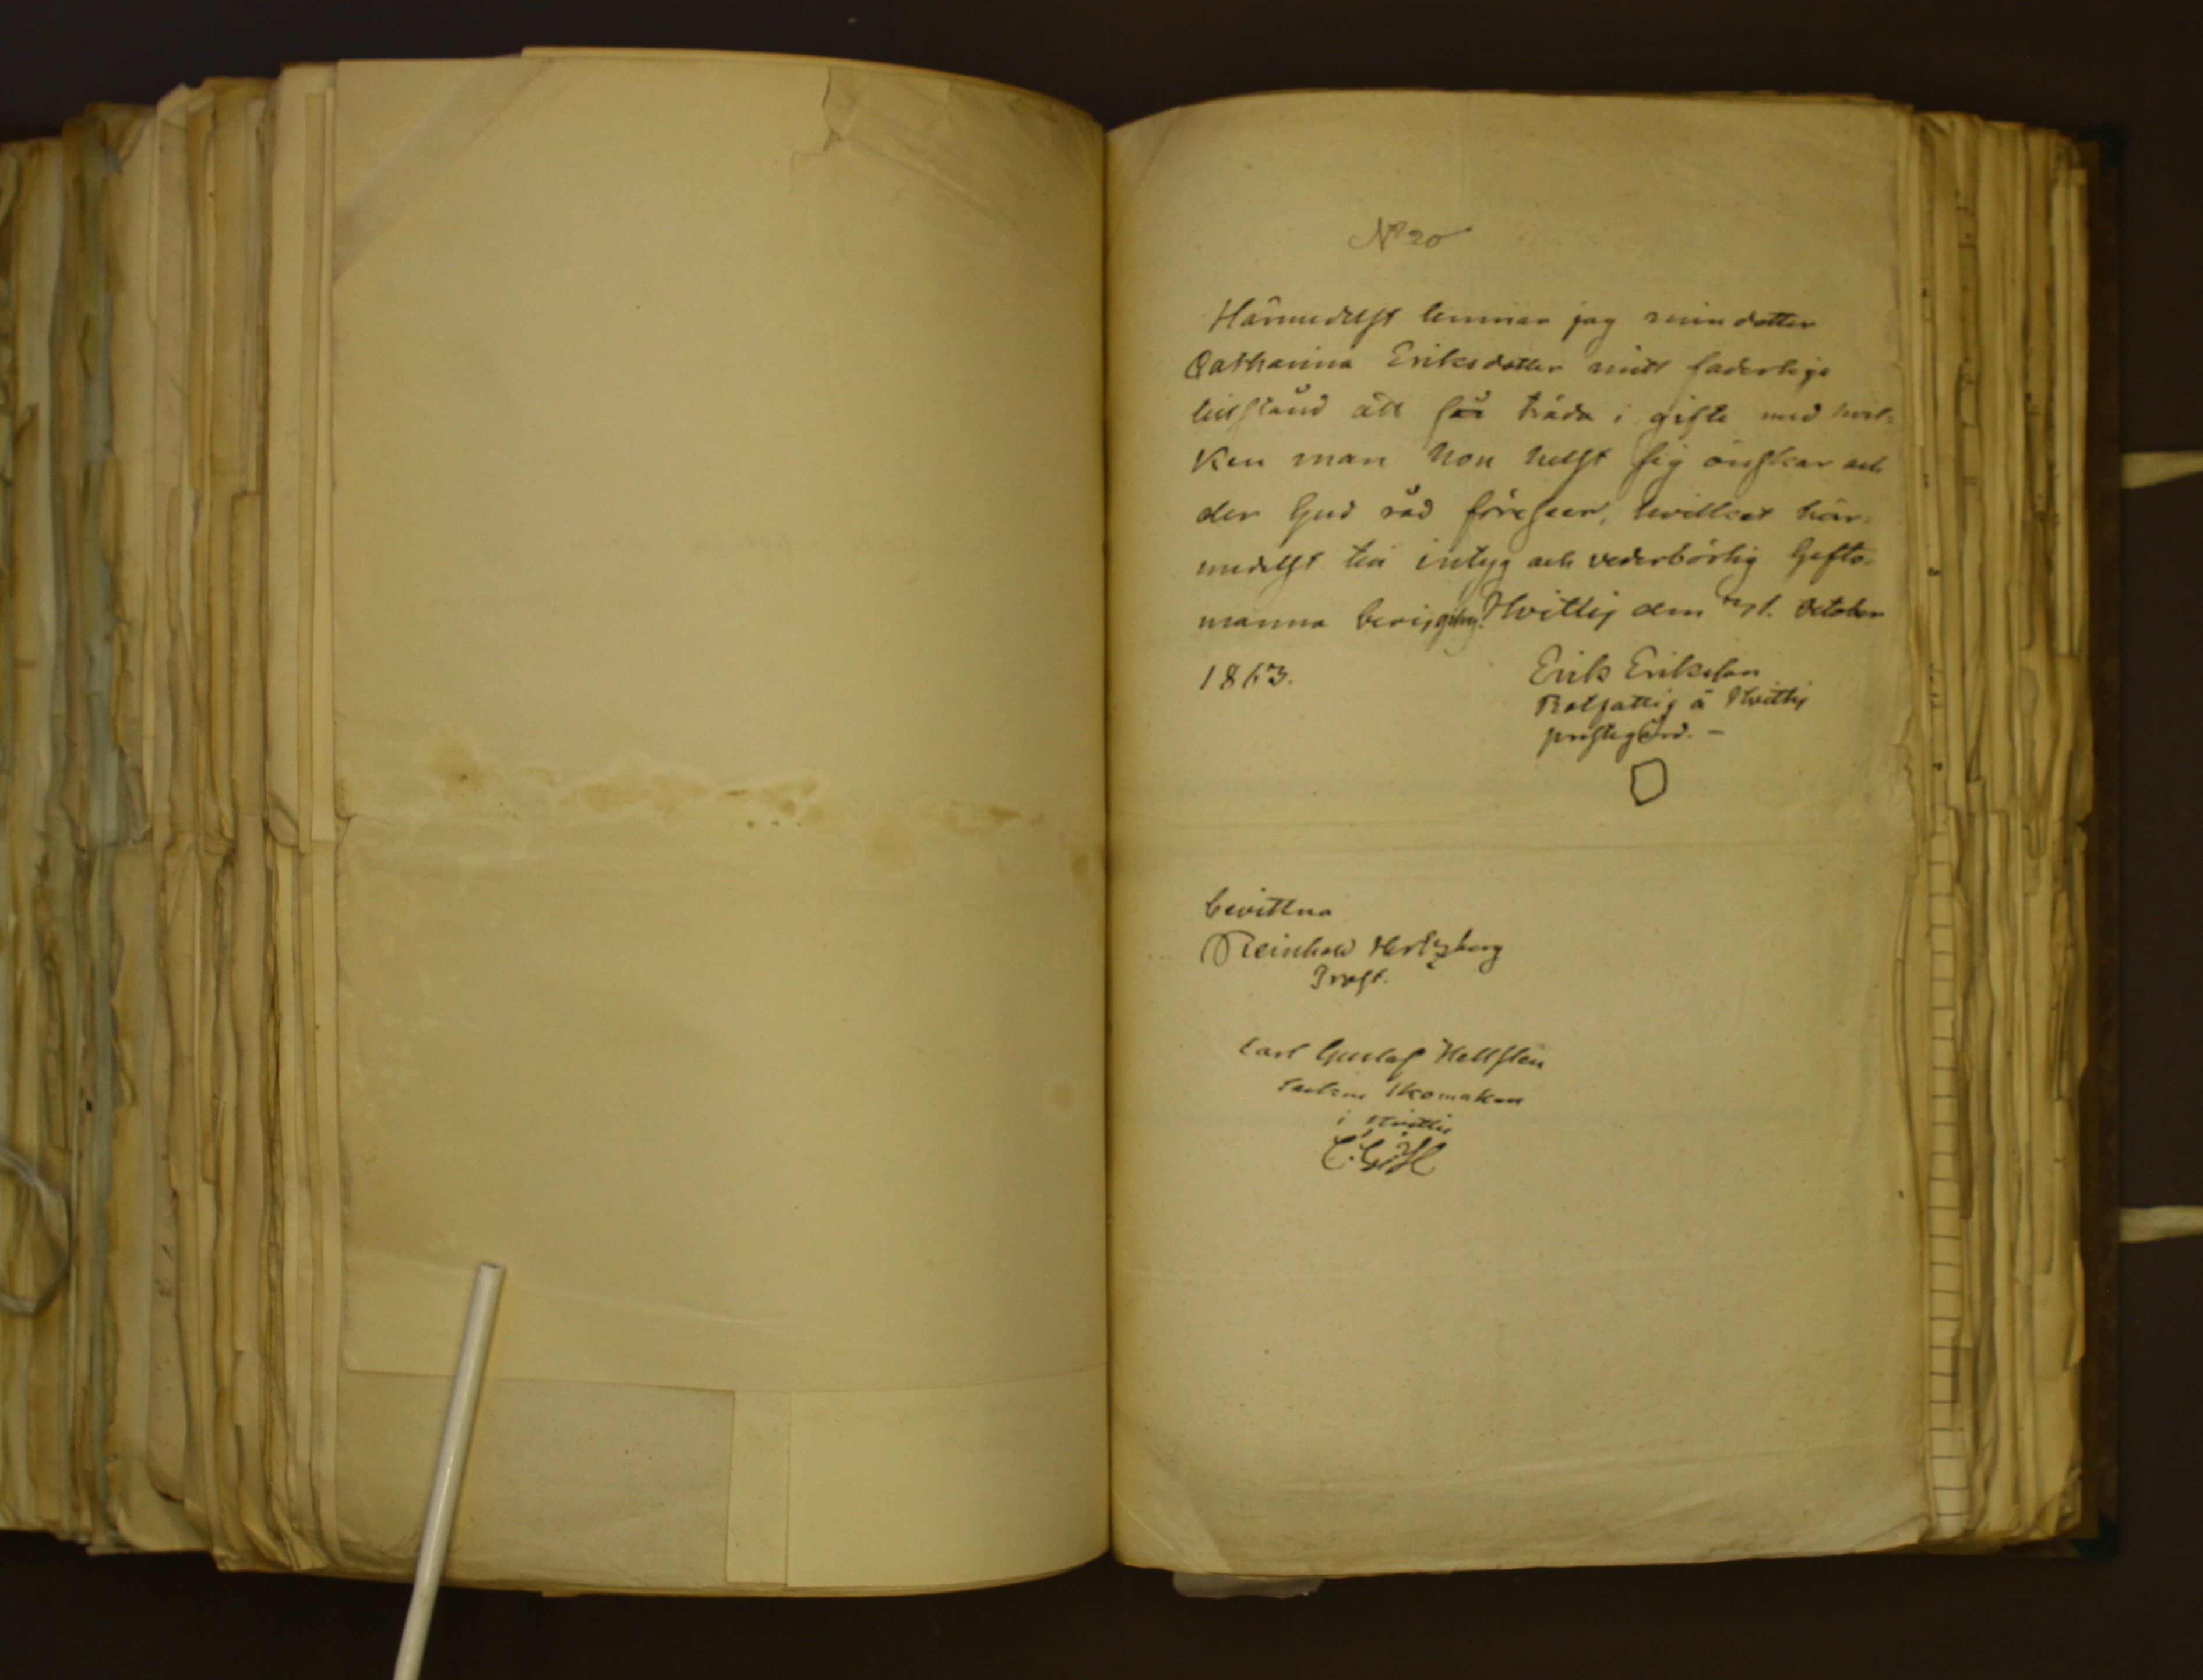 No 20
Härmedelst lemnar jag min dotter
Catharina Eriksdotter mitt faderliga
tillstånd att få träda i gifte med hvil-
ken man hon helst sig önskar och
der Gud råd föreseer, hvilket här-
medelst till intyg och vederbörlig Gifto-
manna Hvittis den October
1863.
Erik Eriksson
Rotfattig å Hvittis
prestegård. -
bevittna
Reinhold Hertzberg
Prost.
Carl Gustaf Hellsten
Socken Skomakare
i Hvittis
C.G.H